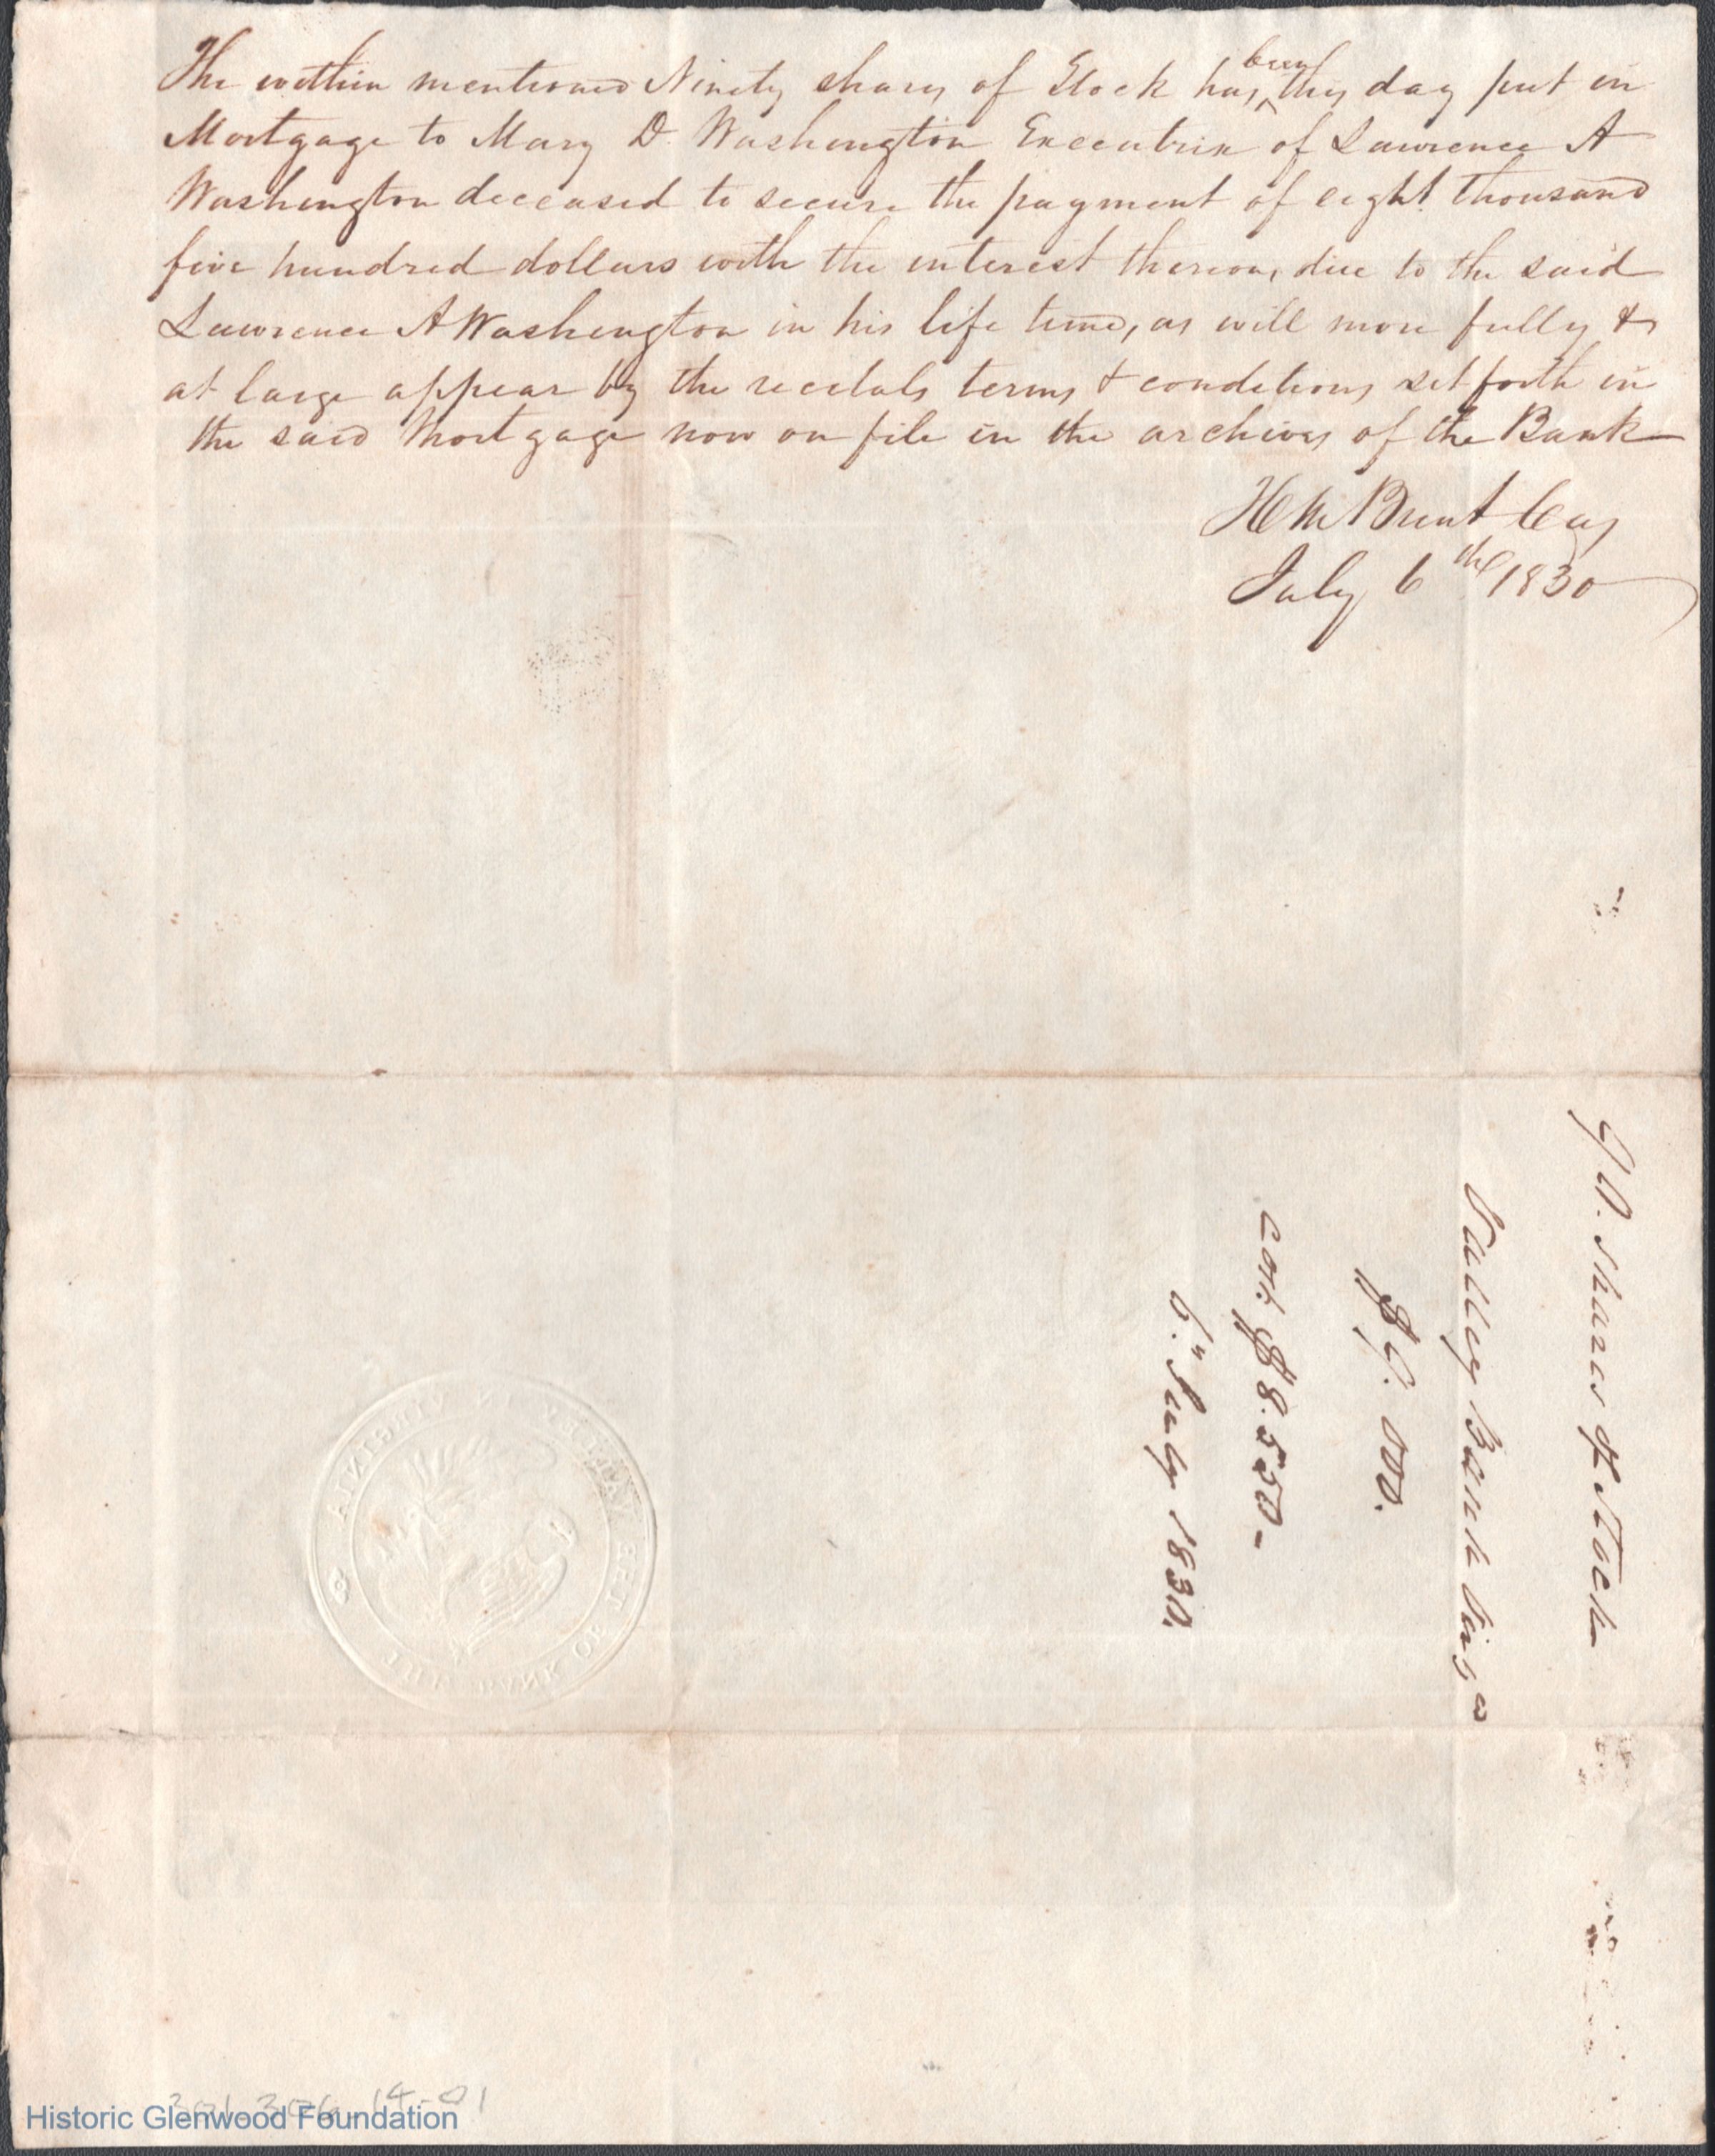 The within mentioned Ninety shares of Stock has been this day put in
Mortgage to Mary D. Washington Executrix of Lawrence A
Washington deceased to secure the payment of eight thousand
five hundred dollars with the interest thereon, due to the said
Lawrence A Washington in his life time, as will more fully &
at large appear by the recitals terms & conditions set forth in
the said Mortgage now on file in the archives of the Bank
H M Brent Cas
July 6th 1830
90. Shares of Stock
Valley Bank Virga
$9.000.
cost $8.550-
6." July 1830.
THE BANK OF THE VALLEY IN VIRGINIA
301.306.14-01
Historic Glenwood Foundation